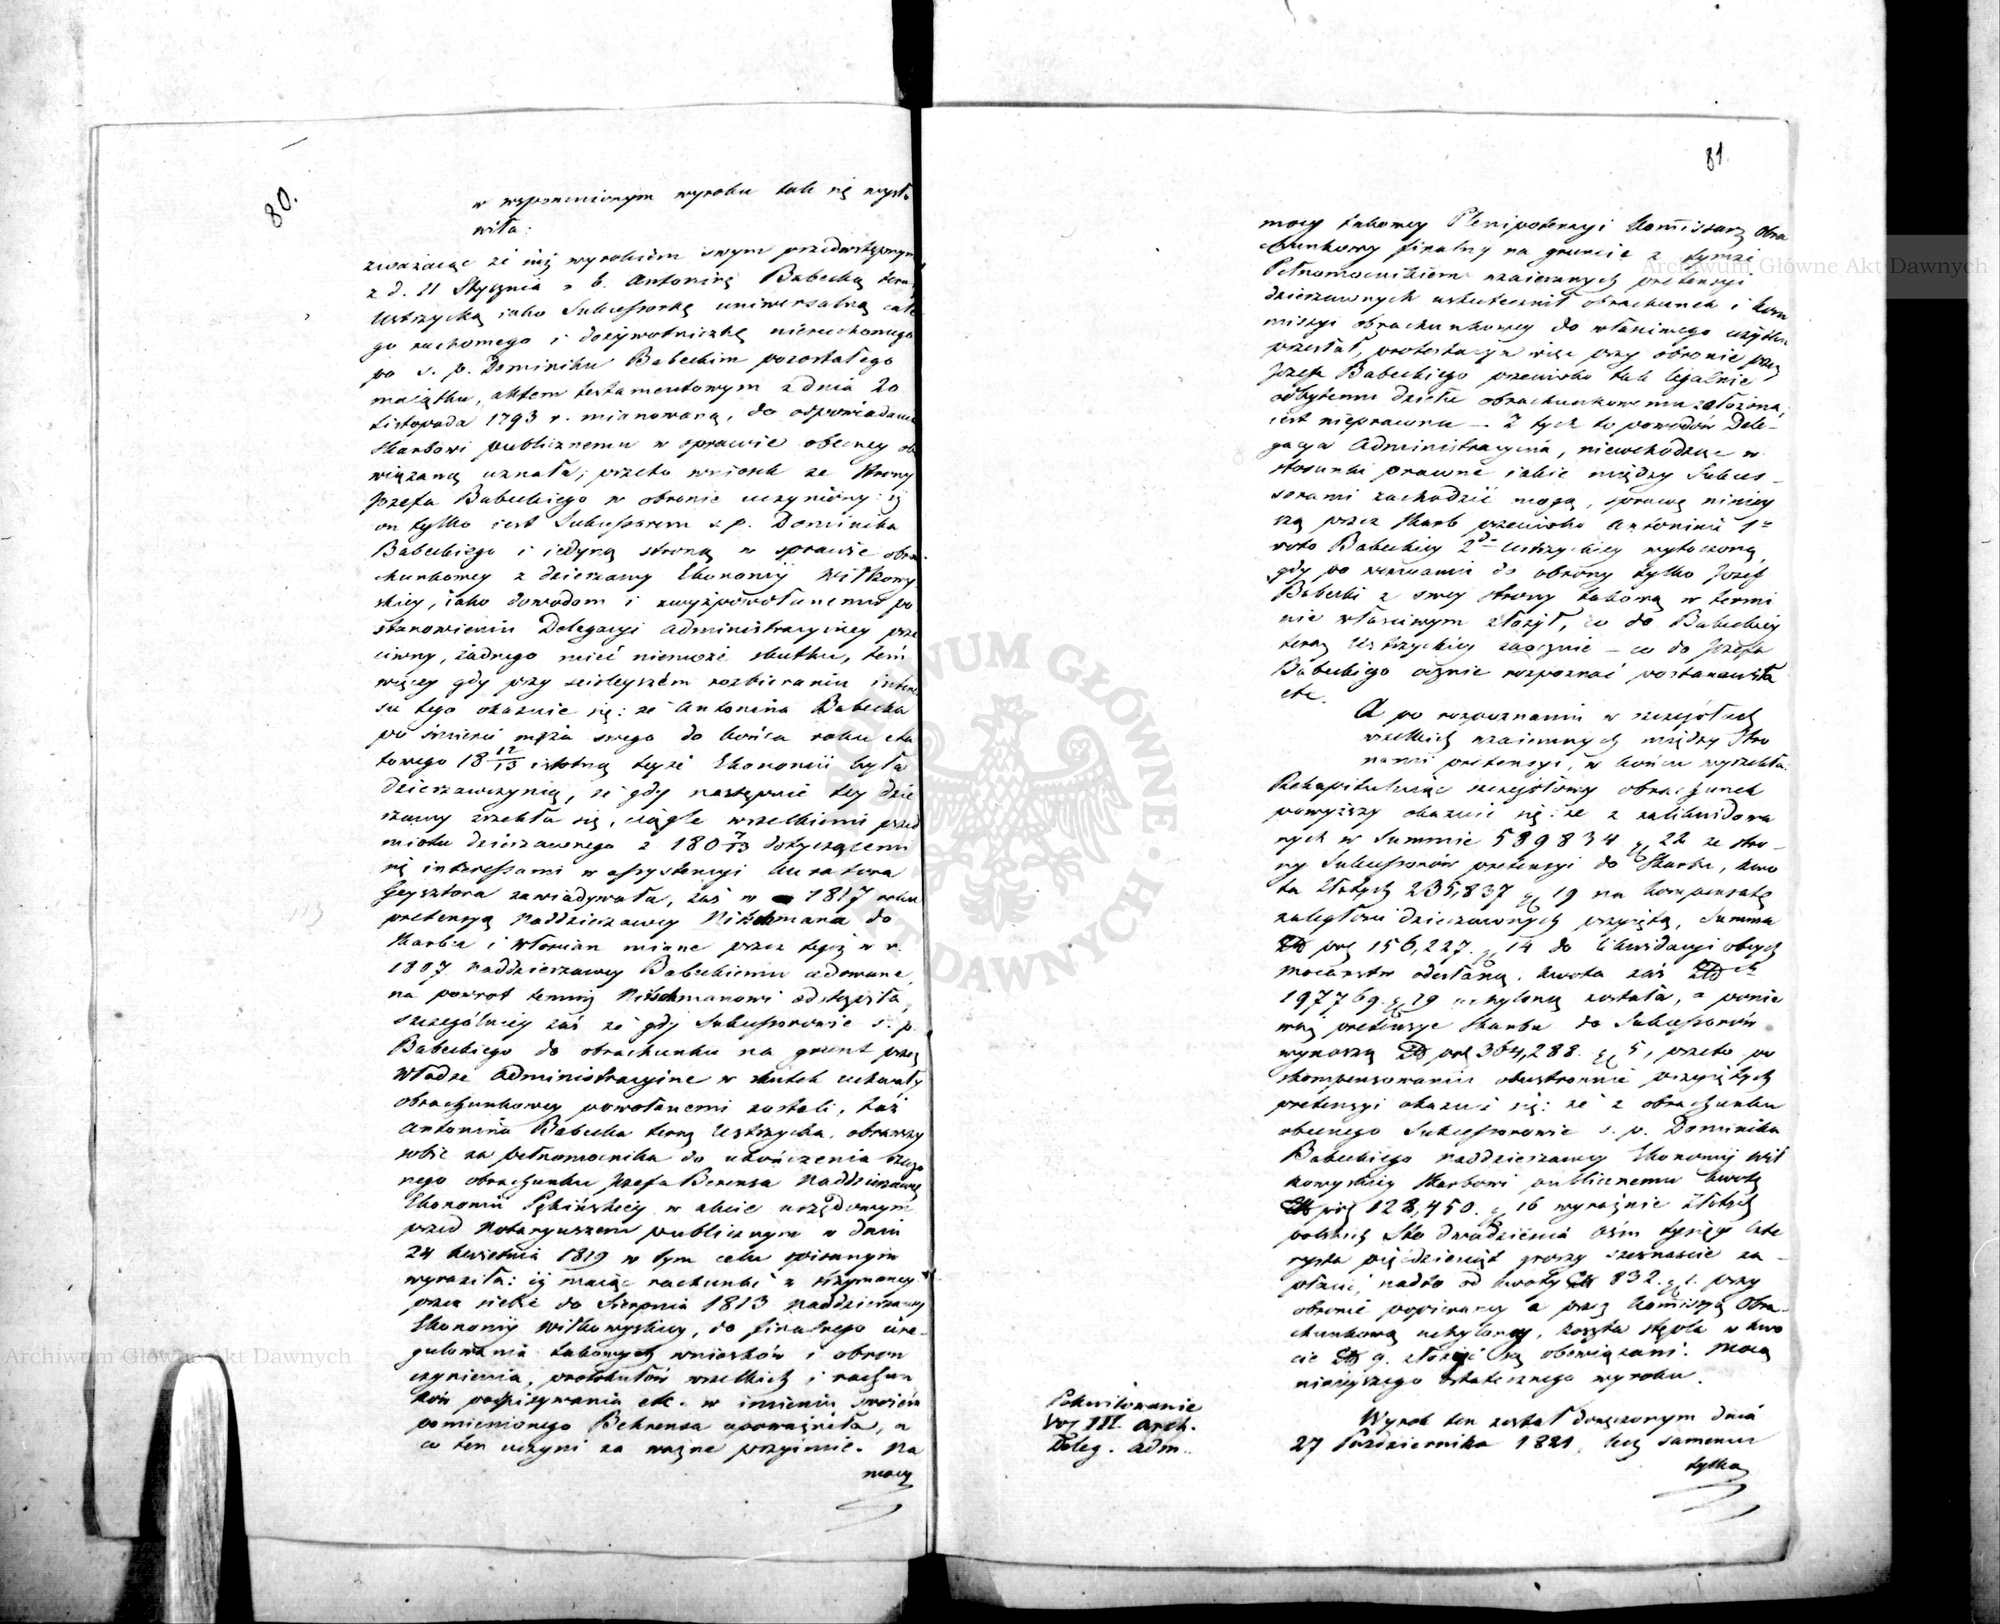 80.
w wspomnionym wyroku tak się wysło
wiła:
zważając że iuż wyrokiem swym przedwstępnym
z d. 11 Stycznia r. b. Antoninę Babecką teraz
Ustrzycką iako Sukcessorkę uniwersalną całe
go ruchomego i dożywotniczkę nieruchomego
po ś. p. Dominiku Babeckim pozostałego
maiątku, aktem testamentowym z dnia 20
Listopada 1793 r. mianowaną, do odpowiadania
Skarbowi publicznemu w sprawie obecney obo
wiązaną uznała; przeto wniosek ze strony
Józefa Babeckiego w obronie uczyniony: iż
on tylko iest Sukcessorem ś. p. Dominika
Babeckiego i iedyną stroną w sprawie obra
chunkowey z dzierżawy Ekonomij Wiłkowy
skiey, iako dowodom i zwyżpowołanemu po
stanowieniu Delegacyi Administracyiney prze
ciwny, żadnego mieć niemoże skutku, tem
więcey gdy przy ścisleyszém rozbieraniu intere
su tego okazuie się: że Antonina Babecka
po śmierci męża swego do końca roku eta
towego 18 12/13 istotną teyże Ekonomii była
dzierżawczynią, że gdy następnie tey dzie
rżawy zrzekła się, ciągle wszelkiemi przed
miotu dzierżawnego z 180 7/13 dotyczącemi
się interessami w assystencyi Kuratora
Geysztora zawiadywała, zaś w 1817 roku
pretensyą Naddzierżawcy Nitschmana do
Skarbu i Włościan miane przez tegoż w r.
1807 Naddzierżawcy Babeckiemu cedowane,
na powrot temuż Nitschmanowi odstąpiła,
szczególniey zaś że gdy Sukcessorowie ś. p.
Babeckiego do obrachunku na grunt przez
Władze Administracyine w skutek uchwały
obrachunkowey powołanemi zostali, taż
Antonina Babecka teraz Ustrzycka, obrawszy
sobie za pełnomocnika do ukończenia
nego obrachunku Józefa Berensa Naddzierżawcę
Ekonomii w akcie urzędowym
przed Notaryuszem publicznym w dniu
24 Kwietnia 1819 w tym celu spisanym
wyraziła: iż maiąc rachunki z trzymaney
przez siebie do Sierpnia 1813 Naddzierżawy
Ekonomij Wiłkowyskiey, do finalnego ure-
gulowania takowych wniosków i obron
czynienia, protokułów wszelkich i rachun
ków podpisywania etc. w imieniu swoiém
pomienionego Behrensa upoważniła, a
co ten uczyni za ważne przyimie. Na
mocy
81.
mocy takowey Plenipotencyi Kommissarz Obra
chunkowy finalny na gruncie z tymże
Pełnomocnikiem wzaiemnych pretensyi
dzierżawnych uskutecznił obrachunek i Kom
missyi obrachunkowey do właściwego użytku
przesłał, protestacya więc przy obronie przez
Józefa Babeckiego przeciwko tak legalnie
odbytemu dziełu obrachunkowemu założona,
iest nieprawna – Z tych to powodów Dele-
gacya Administracyina, niewchodząc w
stosunki prawne iakie między Sukces-
sorami zachodzić mogą, sprawę niniey
szą przez Skarb przeciwko Antoninie 1º
voto Babeckiey 2do Ustrzyckiey wytoczoną,
gdy po wezwaniu do obrony tylko Józef
Babecki z swey strony takową w termi
nie właściwym złożył, co do Babeckiey
teraz Ustrzyckiey zaocznie – co do Józefa
Babeckiego ocznie rozpoznać postanowiła
etc.
A po rozpoznaniu w szczegółach
wszelkich wzaiemnych między Stro
nami pretensyi, w końcu wyrzekła:
Rekapituluiąc szczegółowy obrachunek
powyższy okazuie się: że z zalikwidowa
nych w Summie 589834 gr 22 ze stro-
ny Sukcessorów pretensyi do Skarbu, kwo
ta Złotych 235,837 gr 19 na kompensatę
zaległości dzierżawnych przyiętą, Summa
Złł pol 156,227. gr 14 do likwidacyi obcych
mocarstw odesłaną, kwota zaś Złłch
197769. gr 29 uchyloną została, a ponie
waż pretensye Skarbu do Sukcessorów
wynoszą Złł pol 364,288. gr 5, przeto po
skompensowaniu obustronnie przyiętych
pretensyi okazuie się: że z obrachunku
obecnego Sukcessorowie ś. p. Dominika
Babeckiego Naddzierżawcy Ekonomij Wił
kowyskiey Skarbowi publicznemu kwotę
Złł pol 128,450. gr 16 wyraźnie Złotych
polskich Sto dwadzieścia ośm tysięcy czte
rysta pięćdziesiąt groszy szesnaście za-
płacić, nadto od kwoty Złł 832. gr 1. przy
obronie popieraney a przez Kommissyą Obra-
chunkową uchyloney, koszta stępla w kwo
cie Złł 9. złożyć są obowiązani. Mocą
ninieyszego ostatecznego wyroku.
Wyrok ten został doręczonym dnia
27 Października 1821, lecz samemu
tylko
Pokwitowanie
Vol III. Arch.
Deleg. Adm.
Archiwum Główne Akt Dawnych
Archiwum Główne Akt Dawnych
ARCHIWUM GŁÓWNE AKT DAWNYCH